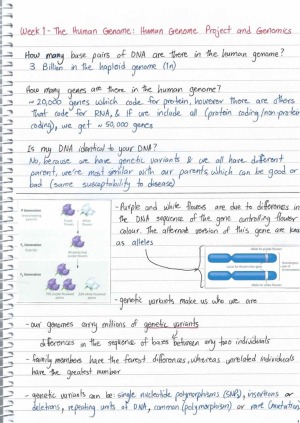 Week 1 - The Human Genome: Human Genome Project and Genomics
How many base pairs of DNA are there in the human genome?
3 Billion in the haploid genome (1n)
How many genes are there in the human genome?
~ 20,000 genes which code for protein, however there are others
that code for RNA, & if we include all (protein coding/non-protein
coding), we get ~ 50,000 genes
Is my DNA identical to your DNA?
No, because we have genetic variants & we all have different
parent, we're most similar with our parents, which can be good or
bad (same susceptability to disease)
P Generation
F₁ Generation
F₂ Generation
- Purple and white flowers are due to differences in
the DNA sequence of the gene controlling flower
colour. The alternate version of this gene are known
as alleles
- genetic variants make us who we are
- our genomes carry millions of genetic variants
differences in the sequence of bases between any two individuals
- family members have the fewest differences, whereas unrelated individuals
have the greatest number
- genetic variants can be: single nucleotide polymorphisms (SNPs), insertions or
deletions, repeating units of DNA, common (polymorphism) or rare (mutation)